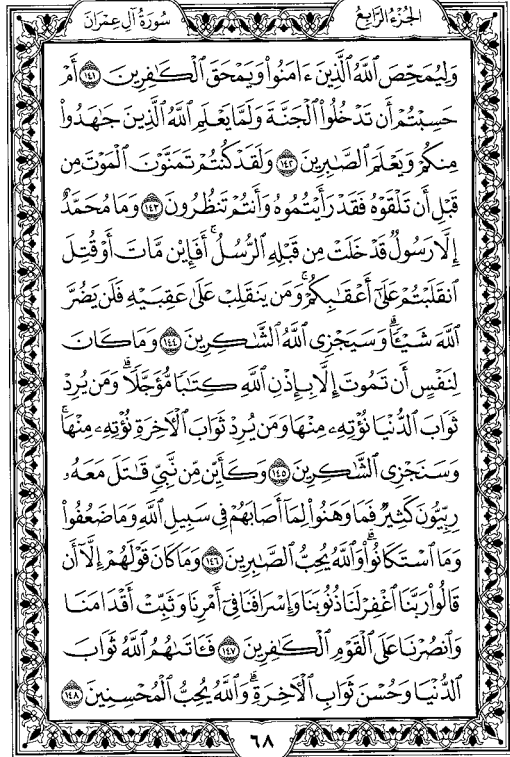 الجزء الرابع
سورة آل عمران
وَلِيُمَحِّصَ ٱللَّهُ ٱلَّذِينَ ءَامَنُوا۟ وَيَمْحَقَ ٱلْكَـٰفِرِينَ ١٤١ أَمْ
حَسِبْتُمْ أَن تَدْخُلُوا۟ ٱلْجَنَّةَ وَلَمَّا يَعْلَمِ ٱللَّهُ ٱلَّذِينَ جَـٰهَدُوا۟
مِنكُمْ وَيَعْلَمَ ٱلصَّـٰبِرِينَ ١٤٢ وَلَقَدْ كُنتُمْ تَمَنَّوْنَ ٱلْمَوْتَ مِن
قَبْلِ أَن تَلْقَوْهُ فَقَدْ رَأَيْتُمُوهُ وَأَنتُمْ تَنظُرُونَ ١٤٣ وَمَا مُحَمَّدٌ
إِلَّا رَسُولٌ قَدْ خَلَتْ مِن قَبْلِهِ ٱلرُّسُلُ ۚ أَفَإِي۟ن مَّاتَ أَوْ قُتِلَ
ٱنقَلَبْتُمْ عَلَىٰٓ أَعْقَـٰبِكُمْ ۚ وَمَن يَنقَلِبْ عَلَىٰ عَقِبَيْهِ فَلَن يَضُرَّ
ٱللَّهَ شَيْـًٔا ۗ وَسَيَجْزِى ٱللَّهُ ٱلشَّـٰكِرِينَ ١٤٤ وَمَا كَانَ
لِنَفْسٍ أَن تَمُوتَ إِلَّا بِإِذْنِ ٱللَّهِ كِتَـٰبًا مُّؤَجَّلًا ۗ وَمَن يُرِدْ
ثَوَابَ ٱلدُّنْيَا نُؤْتِهِۦ مِنْهَا وَمَن يُرِدْ ثَوَابَ ٱلْـَٔاخِرَةِ نُؤْتِهِۦ مِنْهَا ۚ
وَسَنَجْزِى ٱلشَّـٰكِرِينَ ١٤٥ وَكَأَيِّن مِّن نَّبِىٍّ قَـٰتَلَ مَعَهُۥ
رِبِّيُّونَ كَثِيرٌ فَمَا وَهَنُوا۟ لِمَآ أَصَابَهُمْ فِى سَبِيلِ ٱللَّهِ وَمَا ضَعُفُوا۟
وَمَا ٱسْتَكَانُوا۟ ۗ وَٱللَّهُ يُحِبُّ ٱلصَّـٰبِرِينَ ١٤٦ وَمَا كَانَ قَوْلَهُمْ إِلَّآ أَن
قَالُوا۟ رَبَّنَا ٱغْفِرْ لَنَا ذُنُوبَنَا وَإِسْرَافَنَا فِىٓ أَمْرِنَا وَثَبِّتْ أَقْدَامَنَا
وَٱنصُرْنَا عَلَى ٱلْقَوْمِ ٱلْكَـٰفِرِينَ ١٤٧ فَـَٔاتَىٰهُمُ ٱللَّهُ ثَوَابَ
ٱلدُّنْيَا وَحُسْنَ ثَوَابِ ٱلْـَٔاخِرَةِ ۗ وَٱللَّهُ يُحِبُّ ٱلْمُحْسِنِينَ ١٤٨
٦٨